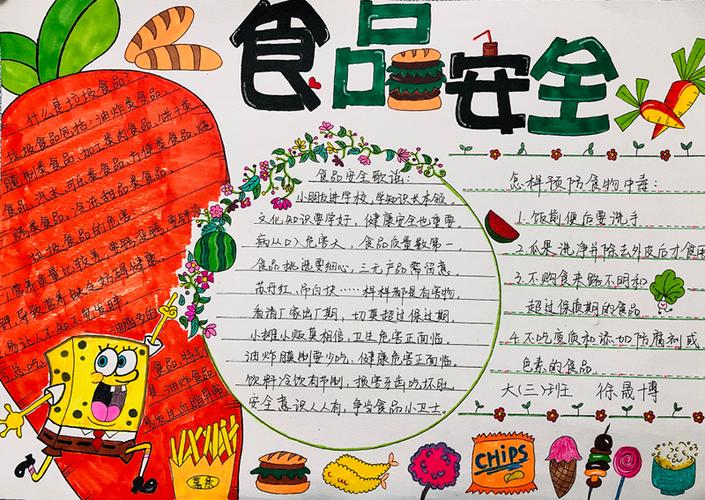 食品安全
什么是垃圾食品:
垃圾食品包括:油炸类食品、
腌制类食品、加工类肉食品、饼干类
食品、汽水、可乐类食品、方便类食品、
烧烤类食品、冷冻甜品类食品。
垃圾食品的危害:
食品安全歌谣:
小朋友进学校,学知识长本领。
文化知识要学好,健康安全也重要。
病从口入危害大,食品质量数第一。
食品挑选要细心,三无产品需留意。
苏丹红、吊白块……样样都是有害物。
看清厂家出厂期,切莫超过保过期。
小摊小贩莫相信,卫生危害正面临。
油炸腌制要少吃,健康危害正面临。
饮料冷饮有节制,损害牙齿吃坏肚。
安全意识人人有,争当食品小卫士。
怎样预防食物中毒:
1.饭前便后要洗手
2.瓜果洗净并除去外皮后才食用
3.不购食来路不明和
超过保质期的食品
4.不吃变质和添加防腐剂或
色素的食品
大(三)班 徐晟博
CHIPS